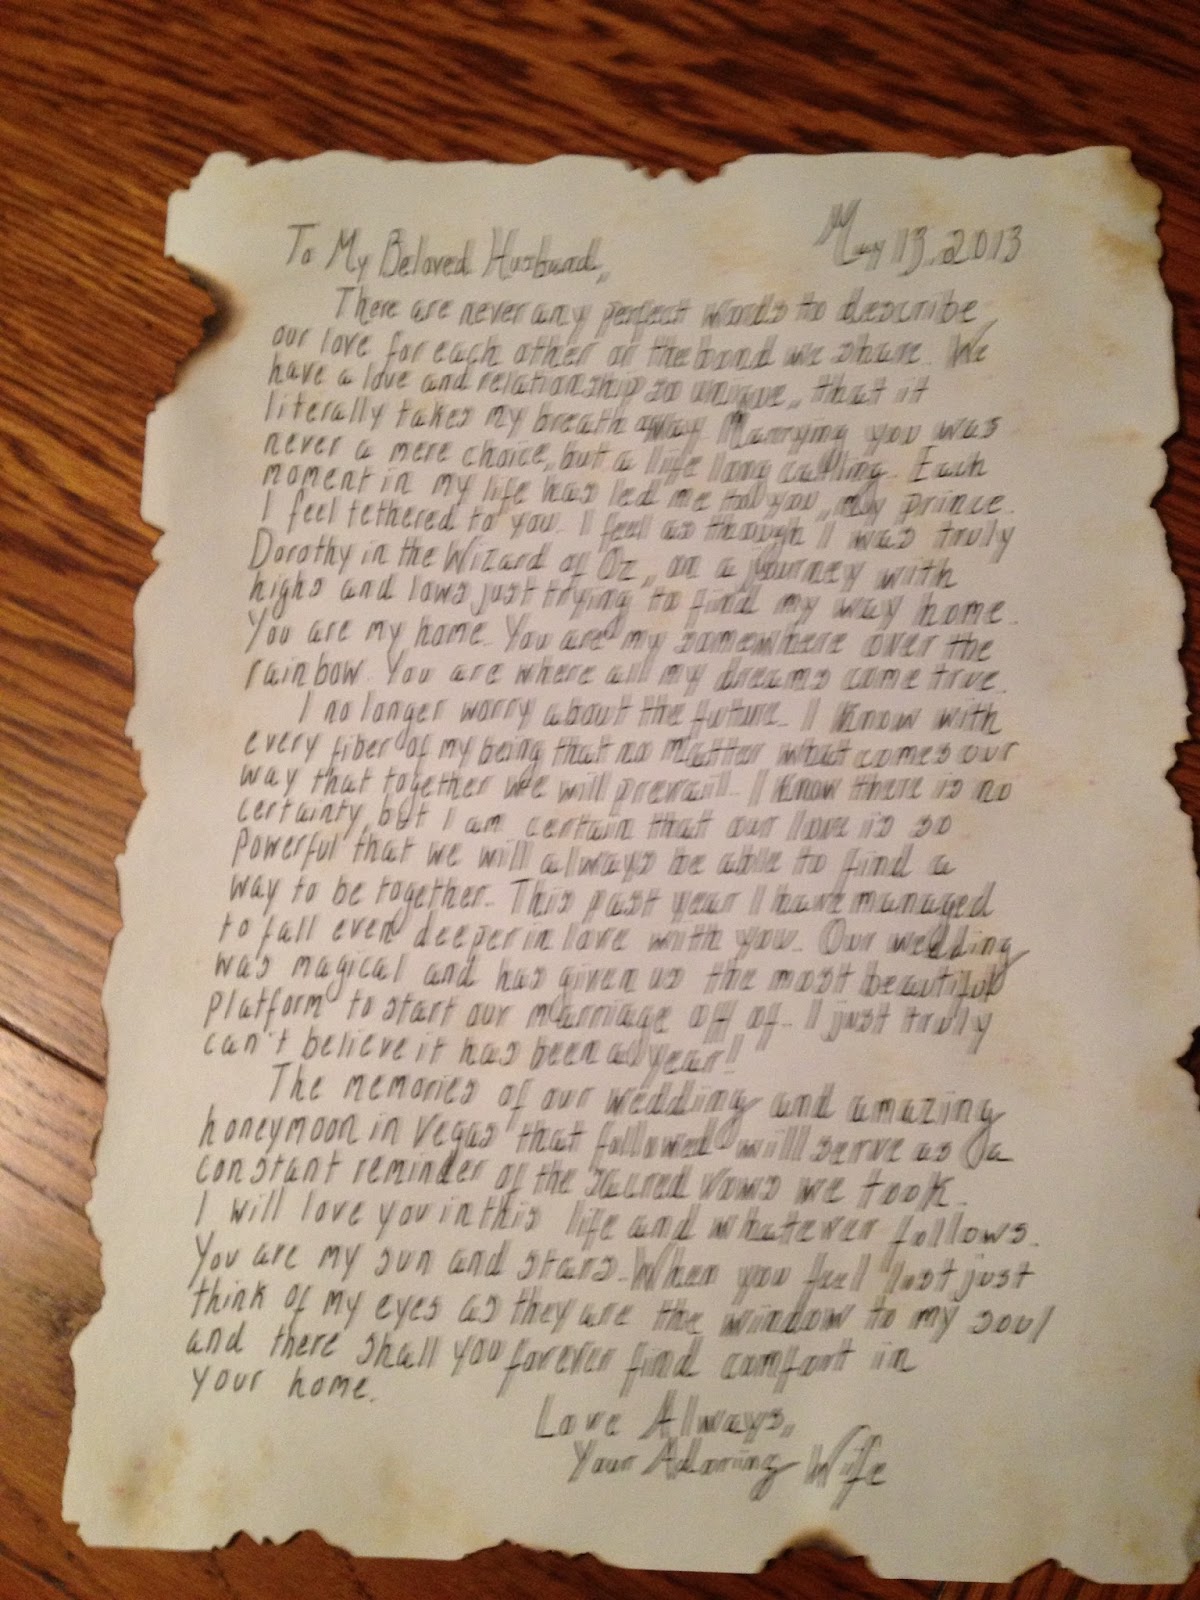 May 13, 2013
To My Beloved Husband,
There are never any perfect words to describe
our love for each other or the bond we share. We
have a love and relationship so unique, that it
literally takes my breath away. Marrying you was
never a mere choice, but a life long calling. Each
moment in my life has led me to you, my prince.
I feel tethered to you. I feel as though I was truly
Dorothy in the Wizard of Oz, on a journey with
highs and lows just trying to find my way home.
You are my home. You are my somewhere over the
rainbow. You are where all my dreams come true.
I no longer worry about the future. I know with
every fiber of my being that no matter what comes our
way that together we will prevail. I know there is no
certainty, but I am certain that our love is so
powerful that we will always be able to find a
way to be together. This past year I have managed
to fall even deeper in love with you. Our wedding
was magical and has given us the most beautiful
platform to start our marriage off of. I just truly
can't believe it has been a year!
The memories of our wedding and amazing
honeymoon in Vegas that followed will serve as a
constant reminder of the sacred vows we took.
I will love you in this life and whatever follows.
You are my sun and stars. When you feel lost just
think of my eyes as they are the window to my soul
and there shall you forever find comfort in
your home.
Love Always,
Your Adoring Wife